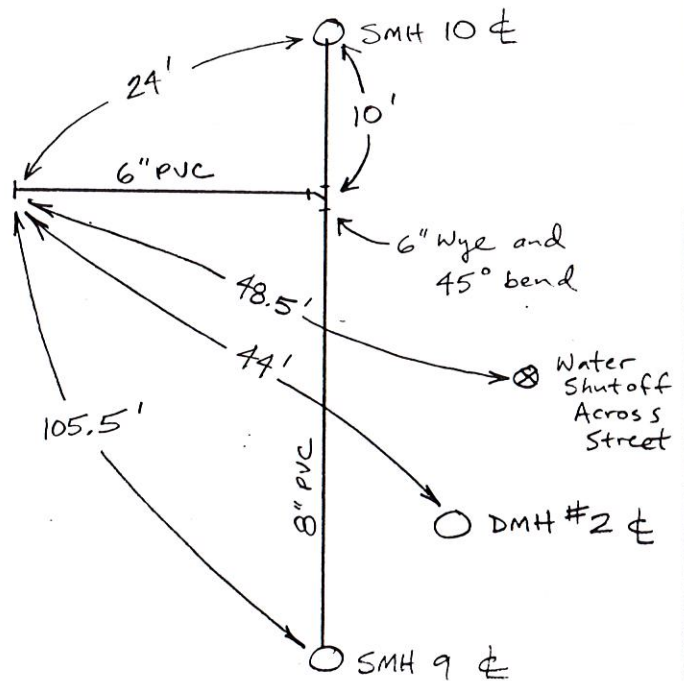 SMH 10 ℄
24'
10'
6" PVC
6" Wye and
45° bend
48.5'
Water
Shutoff
Across
Street
44'
105.5'
8" PVC
DMH #2 ℄
SMH 9 ℄